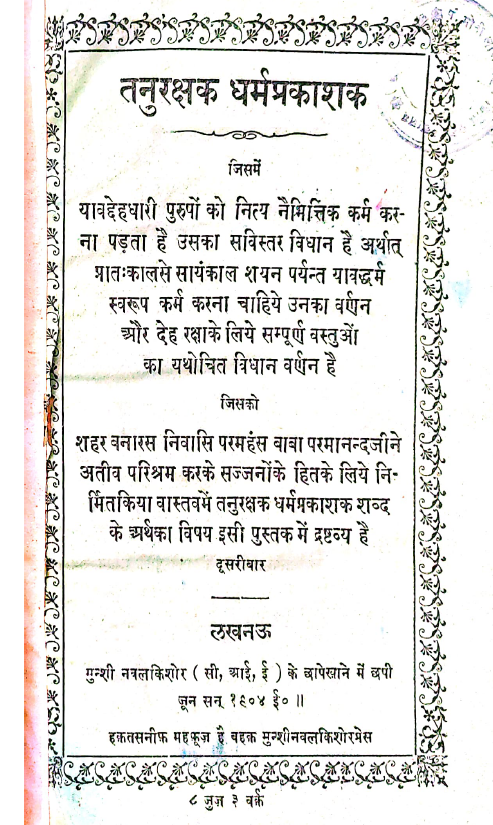 तनुरक्षक धर्मप्रकाशक
जिसमें
यावद्देहधारी पुरुषों को नित्य नैमित्तिक कर्म कर-
ना पड़ता है उसका सविस्तर विधान है अर्थात्
प्रातःकालसे सायंकाल शयन पर्यन्त यावद्धर्म
स्वरूप कर्म करना चाहिये उनका वर्णन
और देह रक्षाके लिये सम्पूर्ण वस्तुओं
का यथोचित विधान वर्णन है
जिसको
शहर बनारस निवासि परमहंस बाबा परमानन्दजीने
अतीव परिश्रम करके सज्जनोंके हितके लिये नि-
र्मितकिया वास्तवमें तनुरक्षक धर्मप्रकाशक शब्द
के अर्थका विषय इसी पुस्तक में द्रष्टव्य है
दूसरीबार
लखनऊ
मुन्शी नवलकिशोर ( सी, आई, ई ) के छापेखाने में छपी
जून सन् १९०४ ई० ॥
हक़तसनीफ़ महफ़ूज़ है बहक़ मुन्शीनवलकिशोरप्रेस
८ जुज़ ३ वर्क़